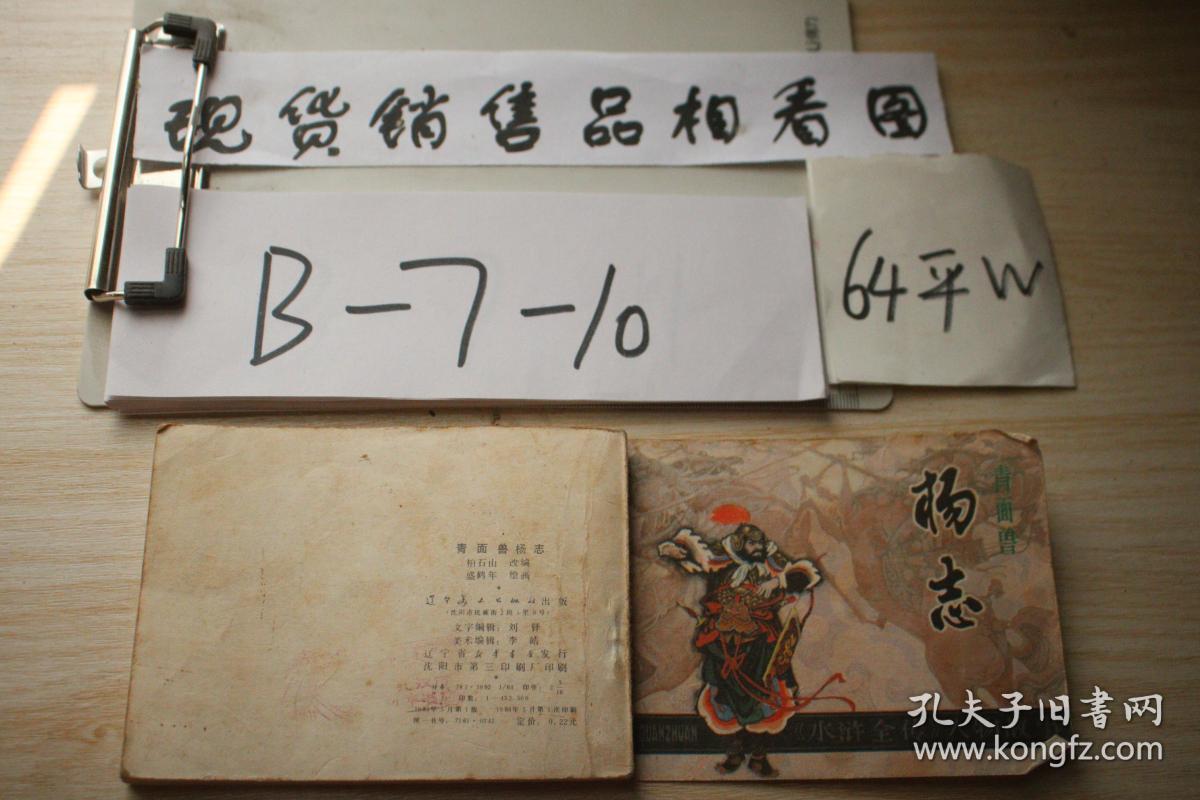 现货销售品相看图
B-7-10
64平W
青面兽杨志
柏石山 改编
盛鹤年 绘画
辽宁美术出版社出版
文字编辑：刘
美术编辑：李皓
辽宁省新华书店发行
沈阳市第三印刷厂印刷
定价：0.22元
青面兽
杨志
《水浒全传》
孔夫子旧书网
www.kongfz.com